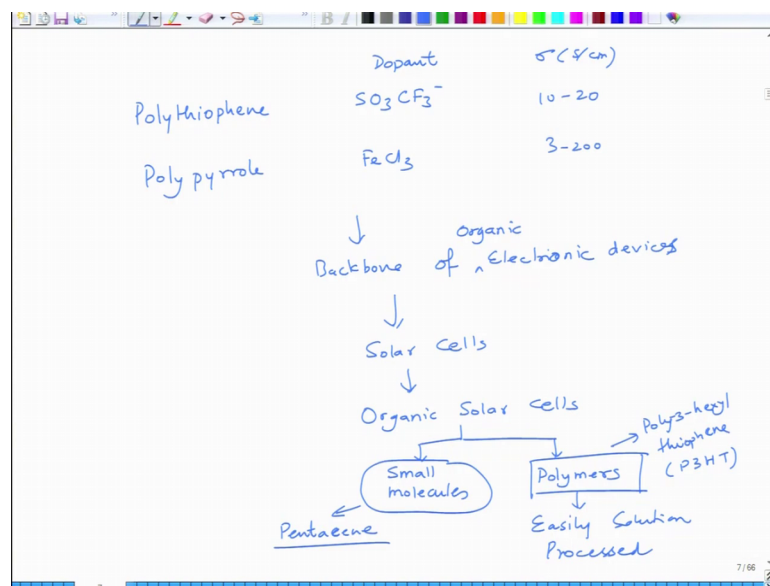 Dopant σ (S/cm)
Polythiophene SO3CF3⁻ 10-20
Polypyrrole FeCl3 3-200
Organic
Backbone of ^ Electronic devices
Solar cells
Organic Solar cells
Small
molecules
Polymers
Poly-3-hexyl
thiophene
(P3HT)
Pentacene
Easily Solution
Processed
7/66